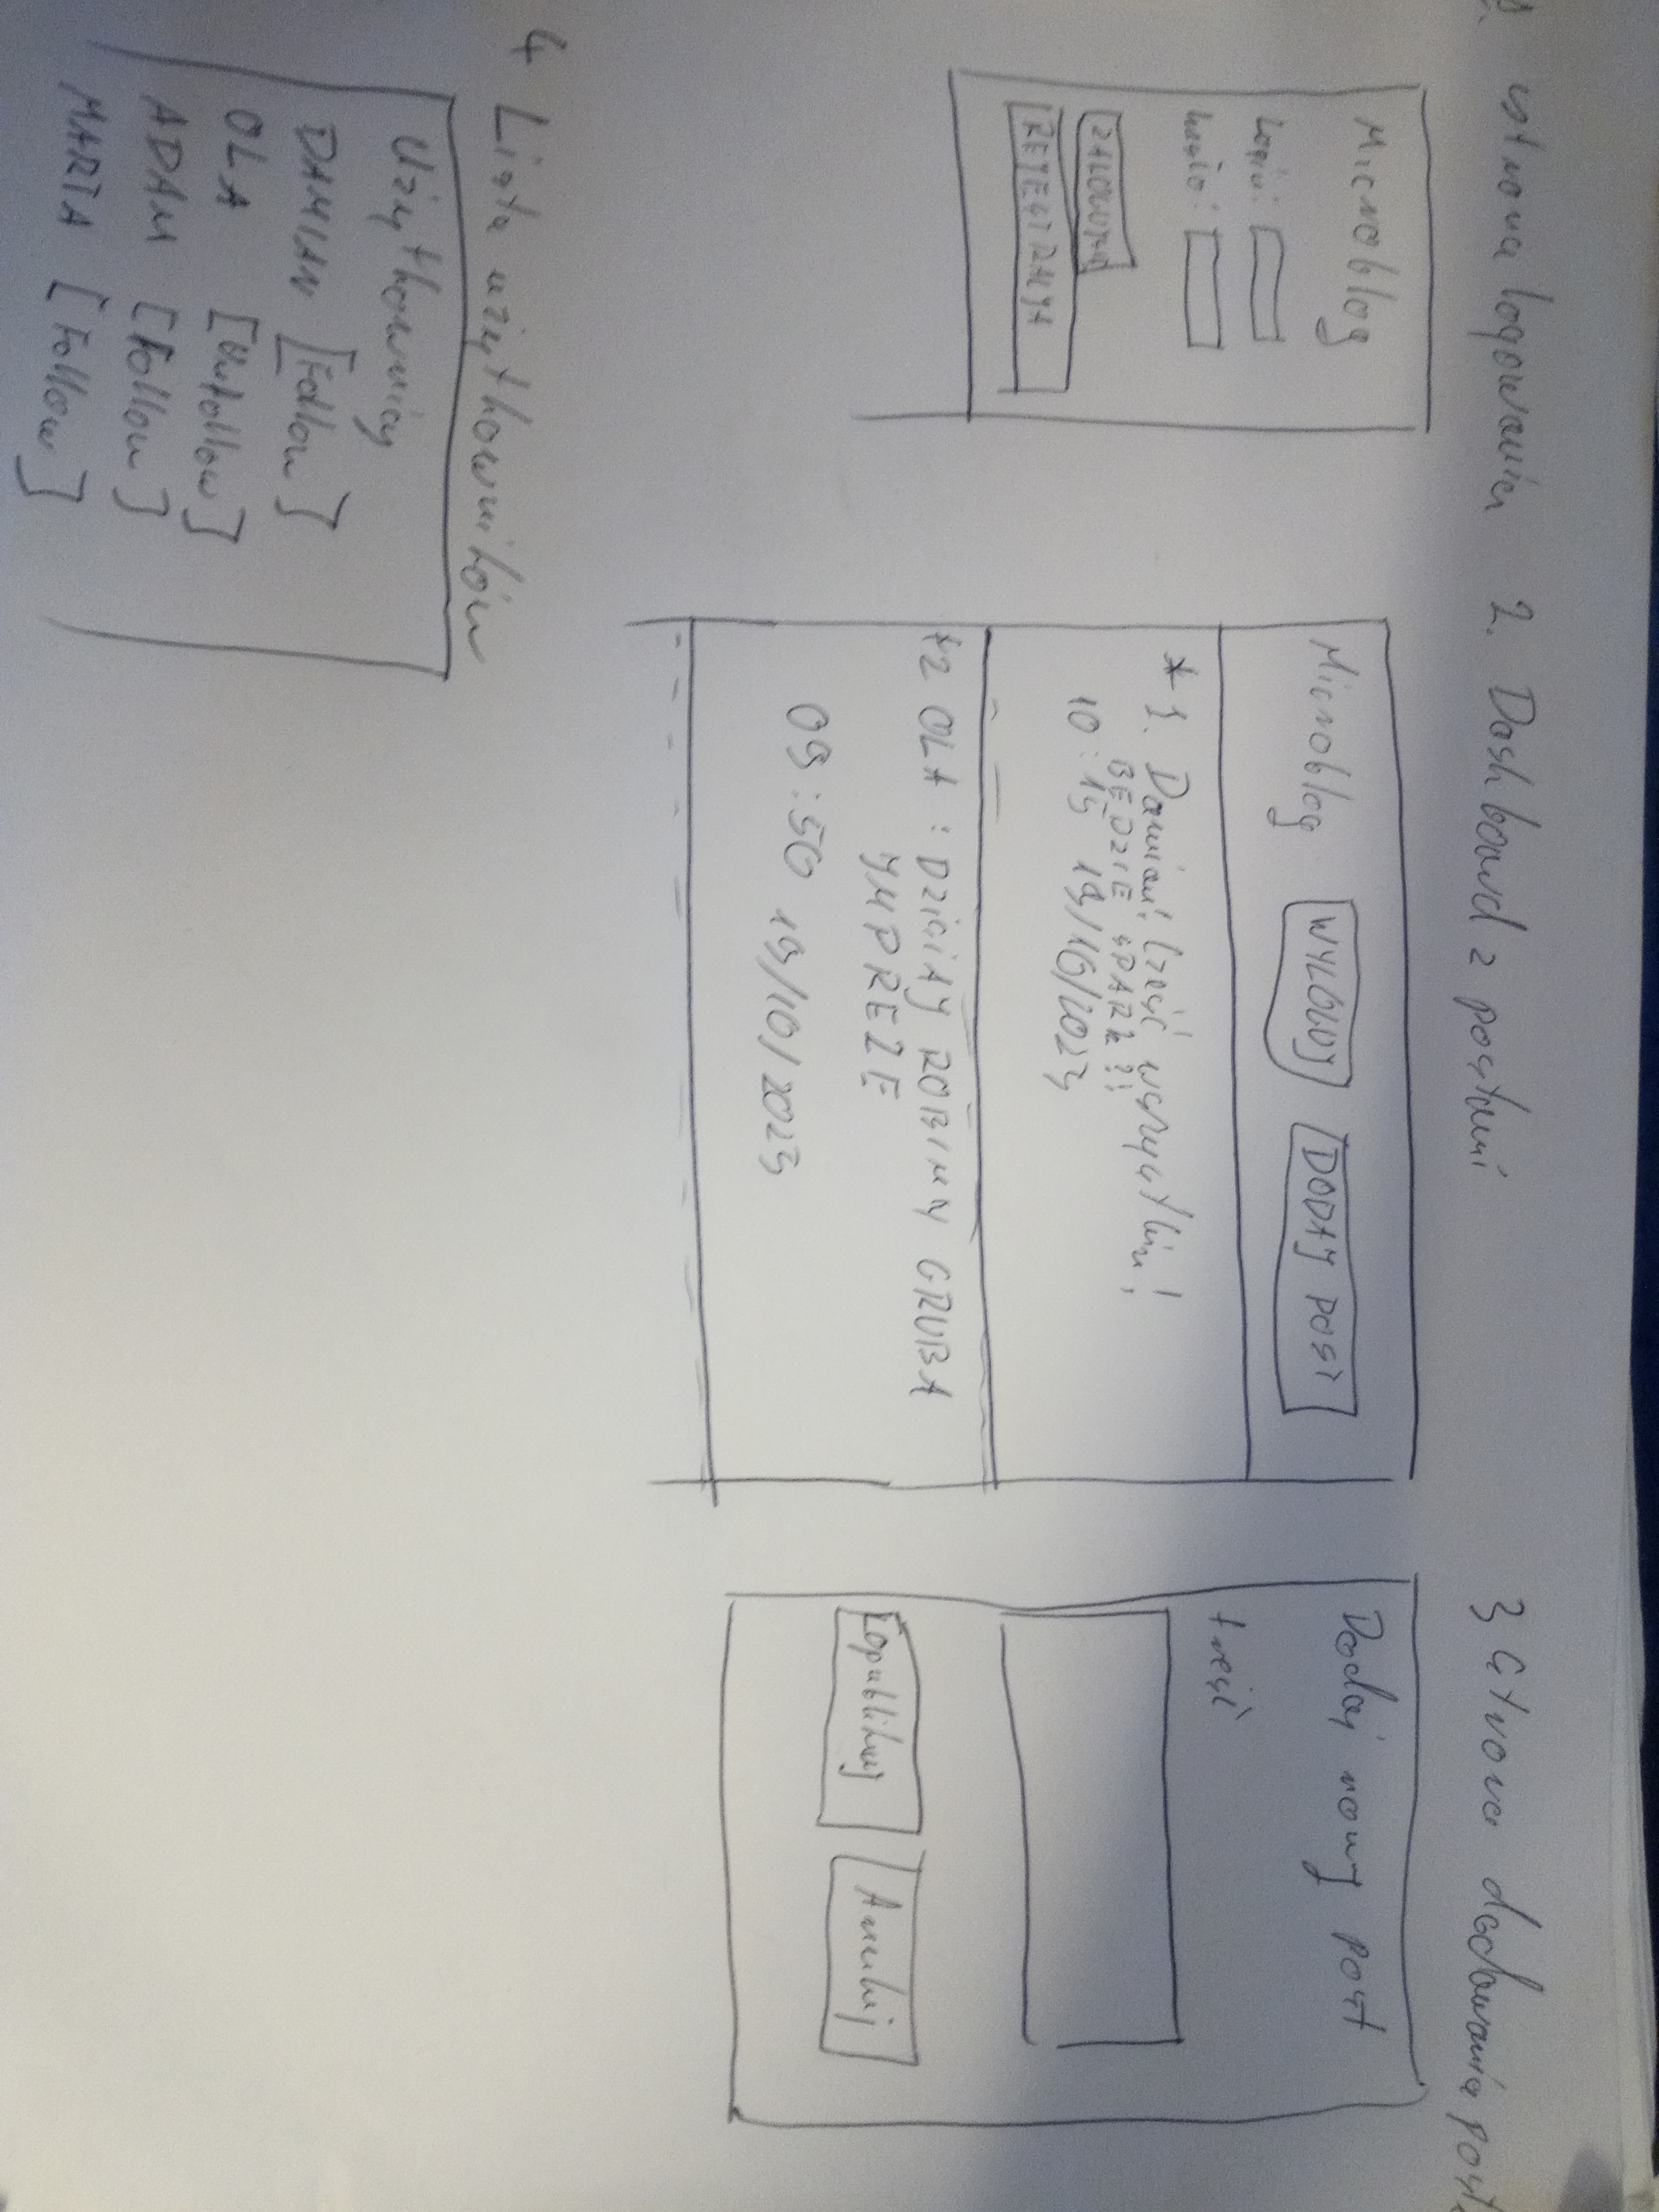 1. strona logowania
Microblog
Login:
hasło:
ZALOGUJ
REJESTRACJA
2. Dashboard z postami
Microblog WYLOGUJ DODAJ POST
* 1. Damian: Cześć wszystkim!
BĘDZIE
10:15 19/10/2023
*2 OLA: DZISIAJ ROBIMY GRUBA
YMPREZE
09:50 19/10/2023
3 Strona dodawania
Dodaj nowy post
treść
Zopublikuj Anuluj
4 Lista użytkowników
Użytkownicy
DAMIAN [Follow]
OLA [Unfollow]
ADAM [Follow]
MARTA [Follow]